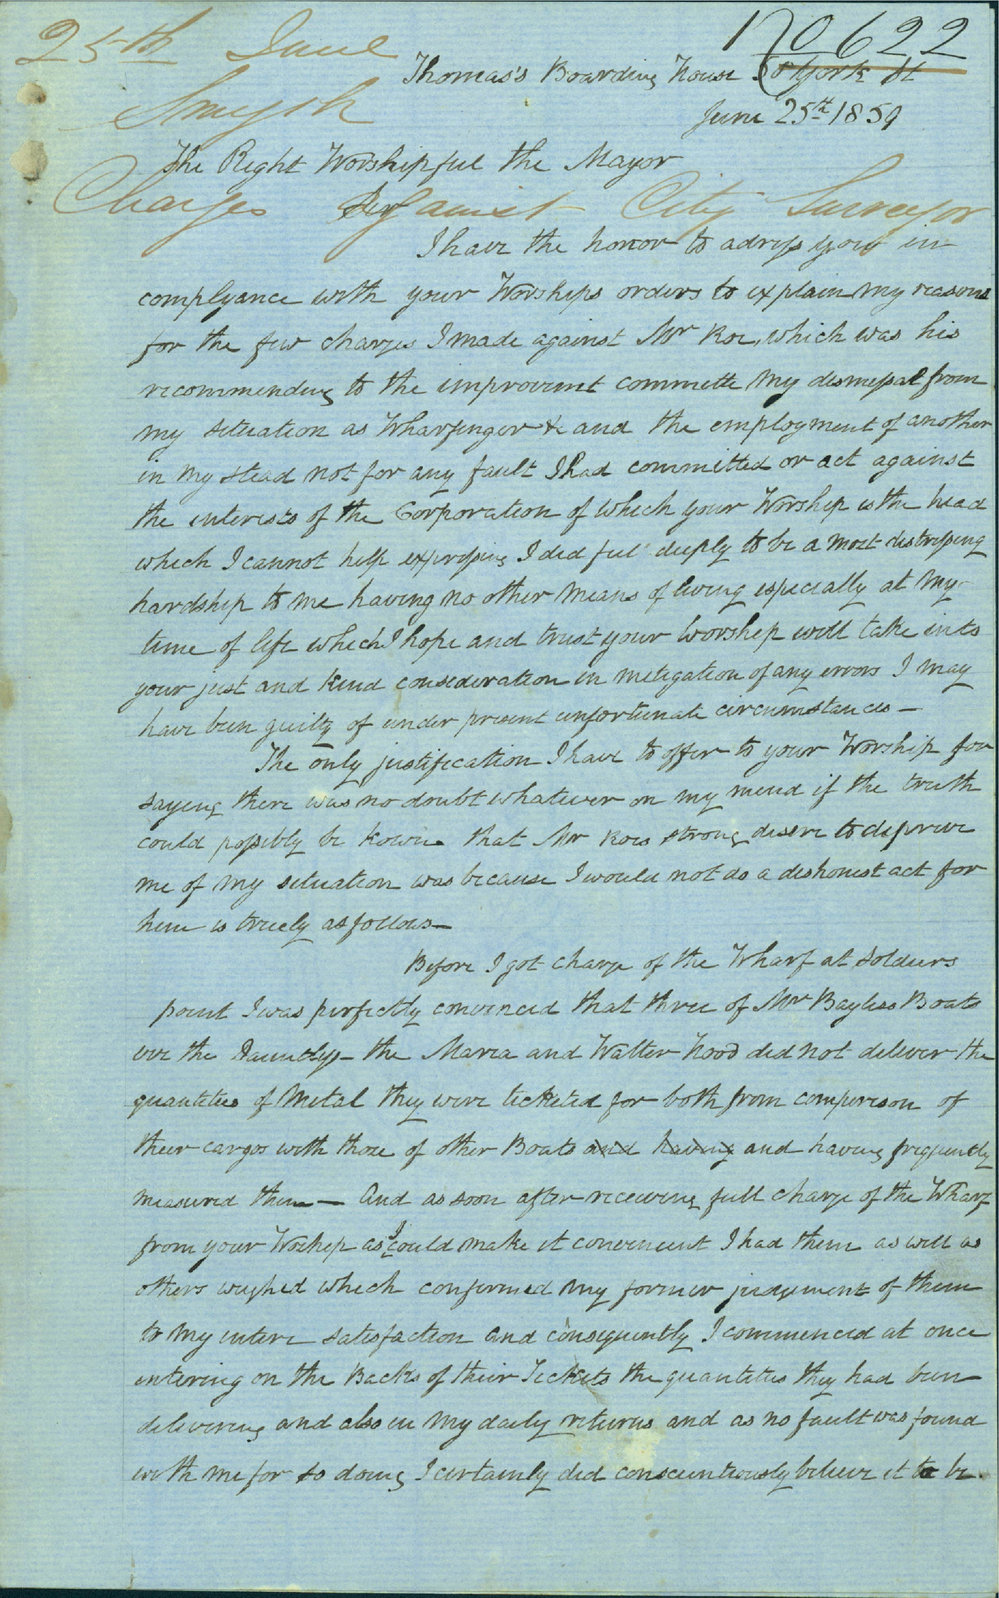 25th June
170622
Thomas's Boarding House 50 York St
Smyth
June 25th 1859
The Right Worshipful the Mayor
Sir
Charges against City Surveyor
I have the honor to adress you in
complyance with your Worships orders to explain my reasons
for the few charges I made against Mr Roe, which was his
recommending to the improvement committe my dismissal from
my situation as Wharfinger &c and the employment of another
in my stead not for any fault I had committed or act against
the interests of the Corporation of which your Worship is the head
which I cannot help expressing I did feel deeply to be a most distressing
hardship to me having no other means of living especially at my
time of life which I hope and trust your Worship will take into
your just and kind consideration in mitigation of any errors I may
have been guilty of under present unfortunate circumstances —
The only justification I have to offer to your Worship for
saying there was no doubt whatever on my mind if the truth
could possibly be known that Mr Roes strong desire to deprive
me of my situation was because I would not do a dishonest act for
him is truely as follows —
Before I got charge of the Wharf at Soldiers
point I was perfectly convinced that three of Mr Bayliss Boats
viz the Dauntless — the Maria and Walter Hood did not deliver the
quantities of Metal they were ticketed for both from comperison of
their cargos with those of other Boats and having and having frequently
measured them — And as soon after receiving full charge of the Wharf
from your Worship as I could make it convenient I had them as well as
others weighed which confirmed my former judgement of them
to my intire satisfaction and consequently I commenced at once
entering on the Backs of their Tickets the quantities they had been
delivering and also in my daily returns and as no fault was found
with me for so doing I certainly did conscientiously believe it to be